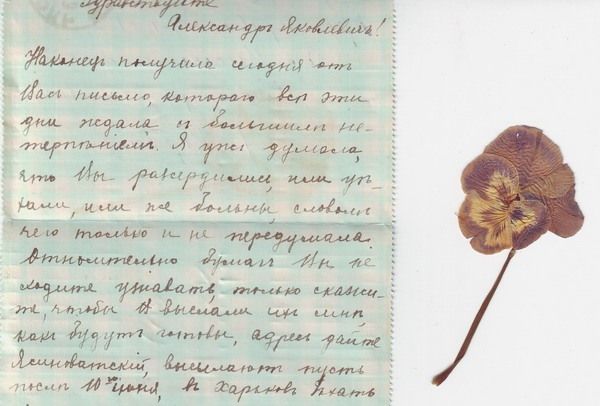 Здравствуйте
Александръ Яковлевичъ!
Наконецъ получила сегодня отъ
Васъ письмо, котораго всѣ эти
дни ждала съ большимъ не-
терпѣніемъ. Я ужъ думала,
что Вы разсердились, или уѣ-
хали, или же больны, словомъ
чего только и не передумала.
Относительно бумагъ Вы не
ходите узнавать, только скажи-
те, чтобы выслали ихъ мнѣ,
какъ будутъ готовы, адресъ дайте
Ясиноватскій, высылаютъ пусть
послѣ 10го іюня, въ Харьковъ ѣхать